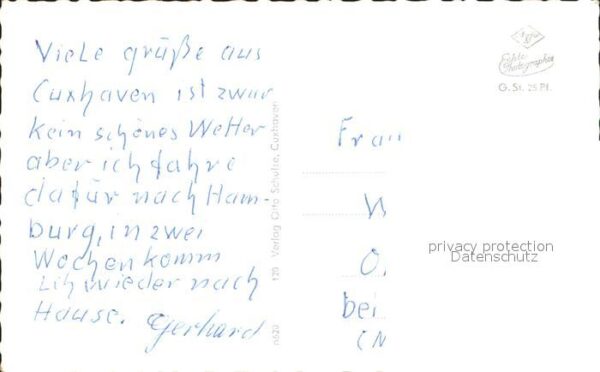 Viele grüße aus
Cuxhaven ist zwar
kein schönes Wetter
aber ich fahre
dafür nach Ham-
burg, in zwei
Wochen komm
ich wieder nach
Hause. Gerhard
120 Verlag Otto Schulze, Cuxhaven
Agfa
Echte Photographie
G. St. 25 Pf.
Frau
W
O.
bei
(N
privacy protection
Datenschutz